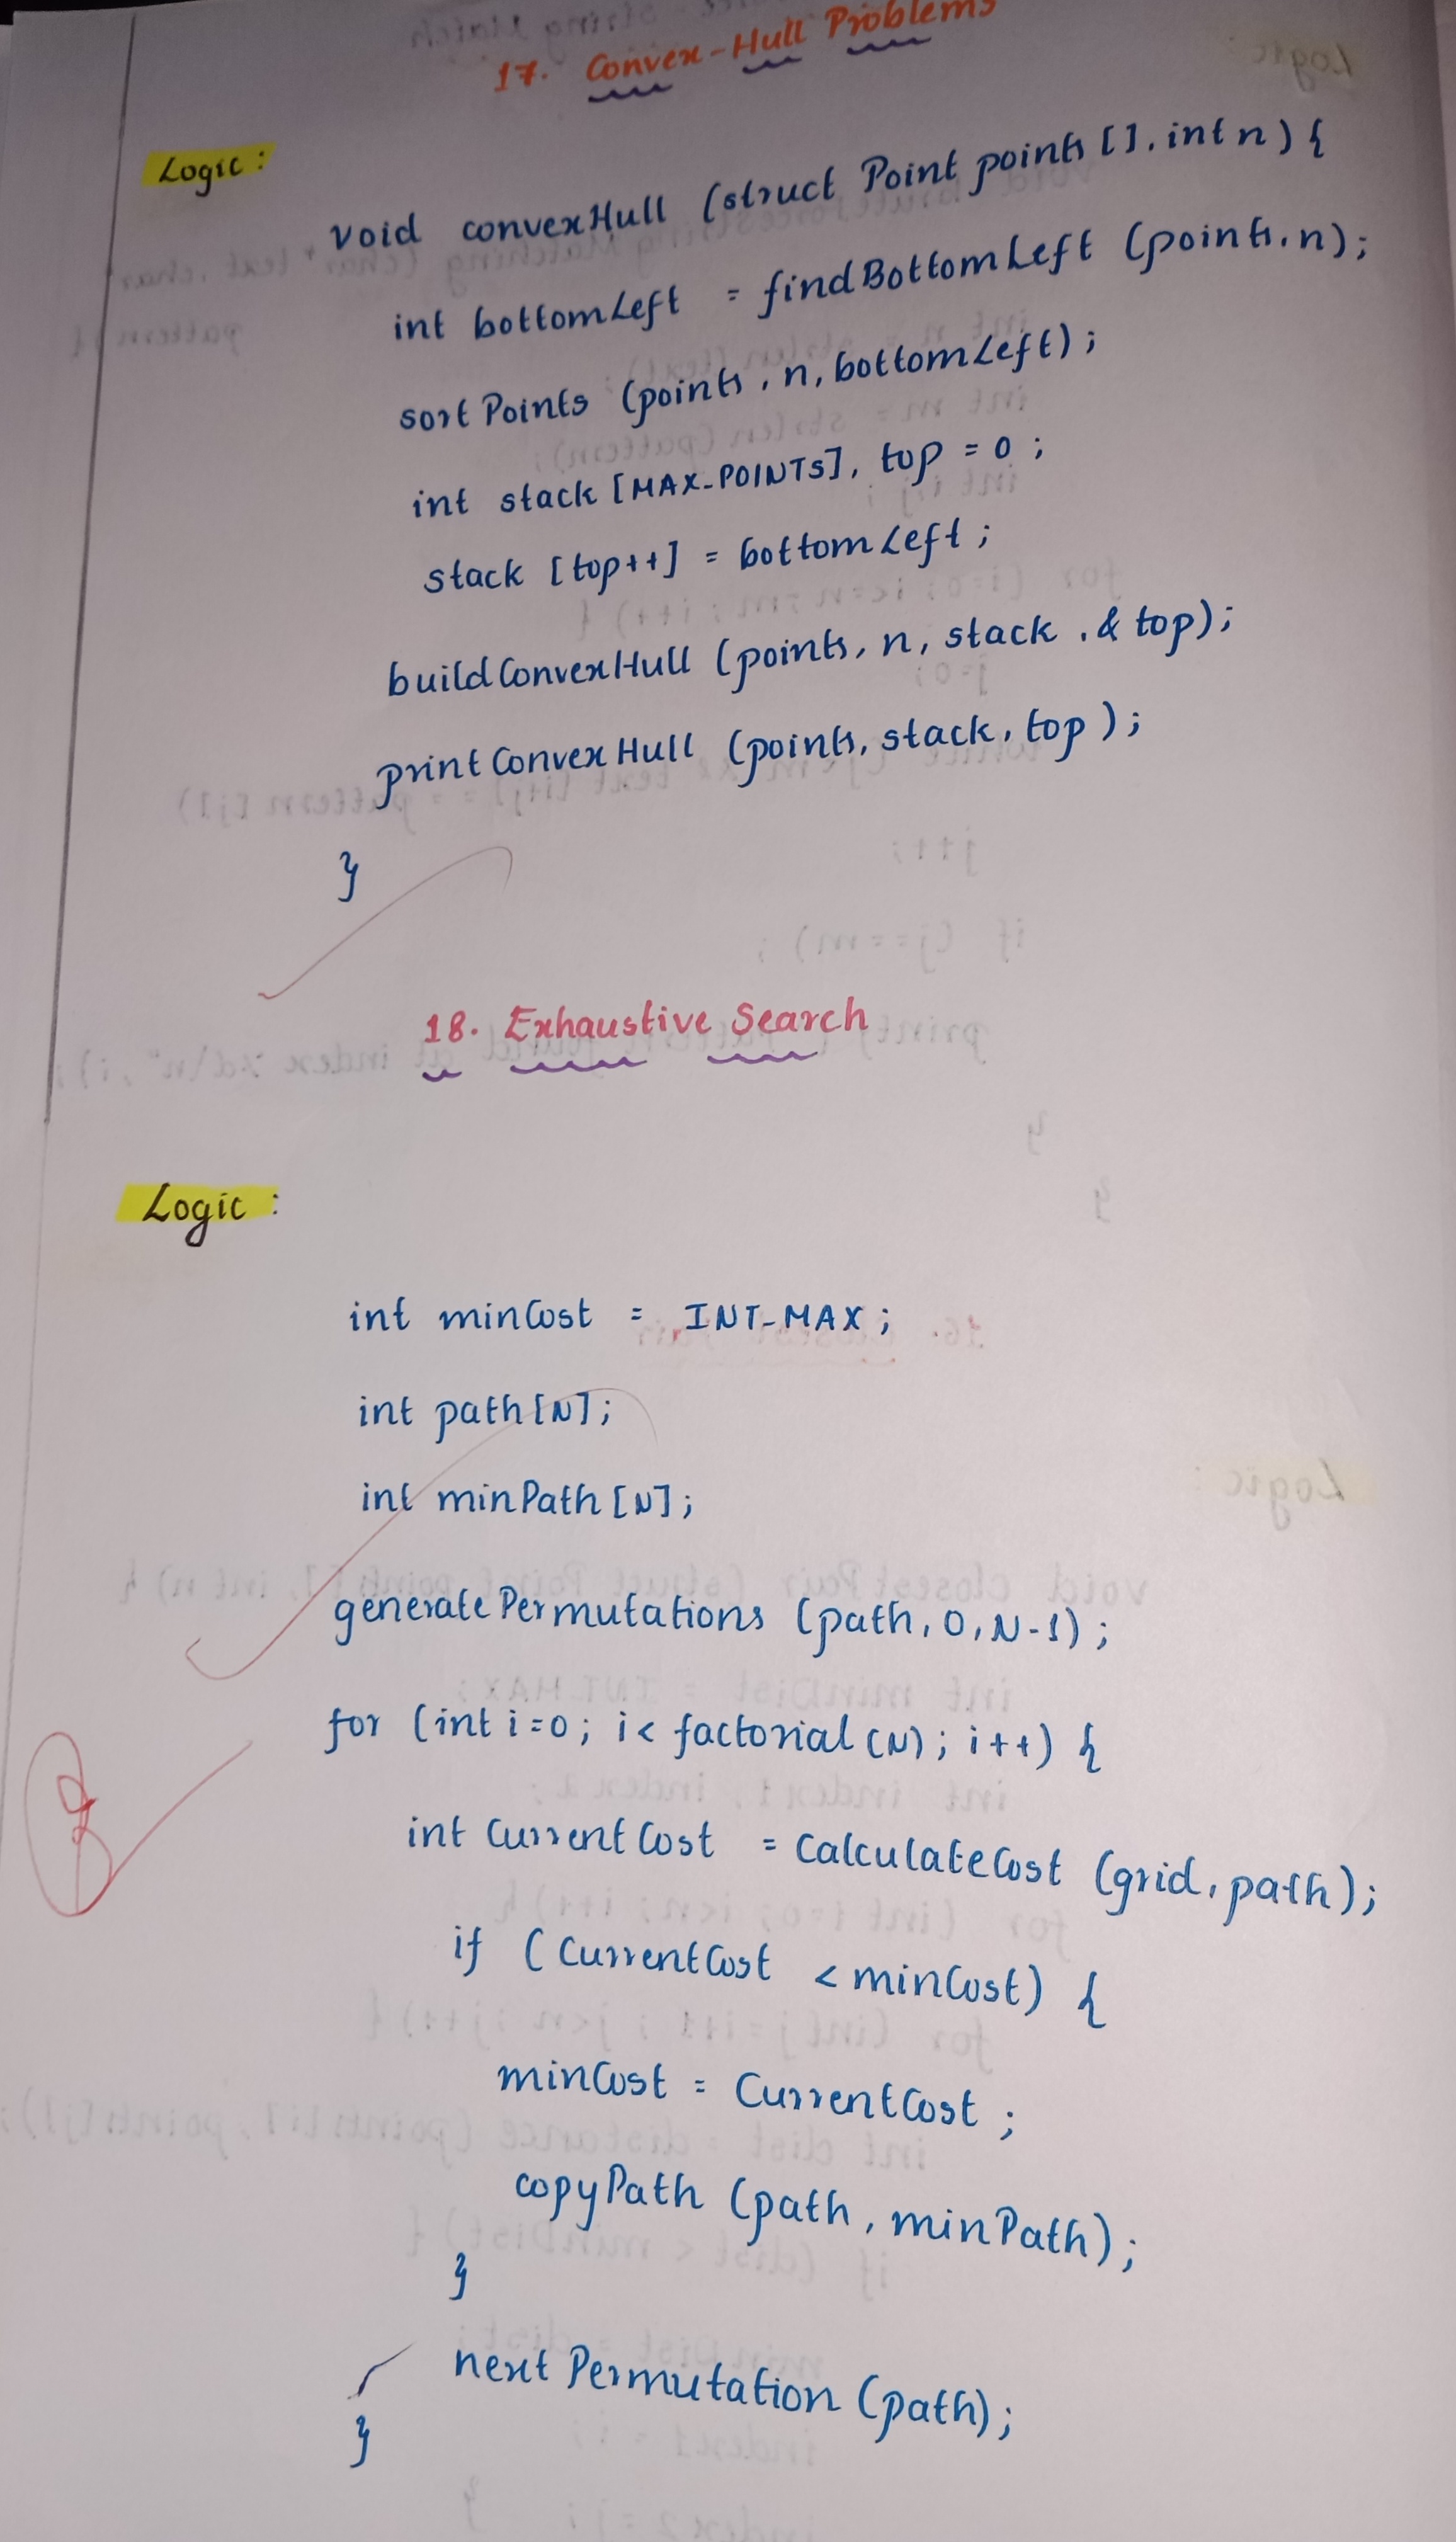 17. Convex-Hull Problems
Logic:
void convexHull (struct Point points [], int n) {
int bottomLeft = findBottomLeft (points, n);
sortPoints (points, n, bottomLeft);
int stack [MAX_POINTS], top = 0;
stack [top++] = bottomLeft;
buildConvexHull (points, n, stack, & top);
printConvexHull (points, stack, top);
}
18. Exhaustive Search
Logic:
int minCost = INT_MAX;
int path[N];
int minPath [N];
generatePermutations (path, 0, N-1);
for (int i=0; i< factorial (N); i++) {
int CurrentCost = CalculateCost (grid, path);
if (CurrentCost < minCost) {
minCost = CurrentCost;
copyPath (path, minPath);
}
nextPermutation (path);
}